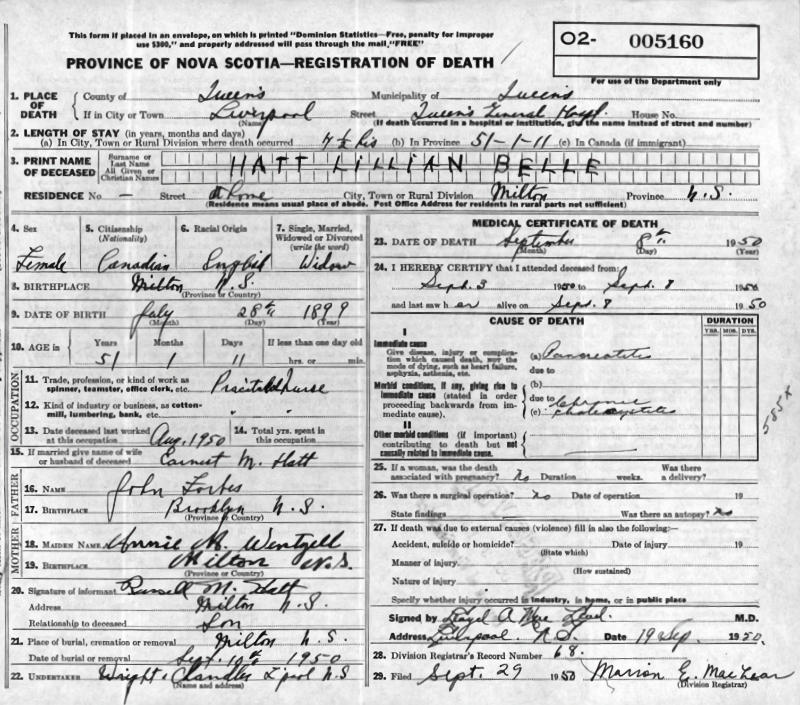 This form if placed in an envelope, on which is printed "Dominion Statistics—Free, penalty for improper
use $300," and properly addressed will pass through the mail, "FREE"
O2- 005160
PROVINCE OF NOVA SCOTIA—REGISTRATION OF DEATH
For use of the Department only
1. PLACE OF DEATH County of Queen's Municipality of Queen's
If in City or Town Liverpool Street Queen's General Hospl. House No.
(Name) (If death occurred in a hospital or institution, give the name instead of street and number)
2. LENGTH OF STAY (in years, months and days)
(a) In City, Town or Rural Division where death occurred 4 ½ (b) In Province 51-1-11 (c) In Canada (if immigrant)
3. PRINT NAME OF DECEASED Surname or Last Name All Given or Christian Names HATT LILLIAN BELLE
RESIDENCE No. — Street at home City, Town or Rural Division Milton Province N.S.
(Residence means usual place of abode. Post Office Address for residents in rural parts not sufficient)
4. Sex 5. Citizenship (Nationality) 6. Racial Origin 7. Single, Married, Widowed or Divorced (write the word)
Female Canadian English Widow
8. BIRTHPLACE Milton N.S.
(Province or Country)
9. DATE OF BIRTH July 28th 1899
(Month) (Day) (Year)
10. AGE in Years Months Days If less than one day old
51 1 11 hrs. or min.
OCCUPATION
11. Trade, profession or kind of work as spinner, teamster, office clerk, etc. Practical nurse
12. Kind of industry or business, as cotton-mill, lumbering, bank, etc. " "
13. Date deceased last worked at this occupation Aug, 1950 14. Total yrs. spent in this occupation.
15. If married give name of wife or husband of deceased Earnest M. Hatt
FATHER
16. NAME John Forbes
17. BIRTHPLACE Brooklyn N.S.
(Province or Country)
MOTHER
18. MAIDEN NAME Annie M. Wentzell
19. BIRTHPLACE Milton N.S.
(Province or Country)
20. Signature of informant Russell M. Hatt
Address Milton N.S.
Relationship to deceased Son
21. Place of burial, cremation or removal Milton N.S.
Date of burial or removal Sept. 10th 1950
22. UNDERTAKER Wright & Chandler L'pool N.S
(Name and address)
MEDICAL CERTIFICATE OF DEATH
23. DATE OF DEATH September 8th 1950
(Month) (Day) (Year)
24. I HEREBY CERTIFY that I attended deceased from:
Sept. 3 1950 to Sept. 8 1950
and last saw h er alive on Sept. 8 1950
CAUSE OF DEATH DURATION
YRS. MOS. DYS.
I
Immediate cause
Give disease, injury or complication which caused death, not the mode of dying, such as heart failure, asphyxia, asthenia, etc.
(a) Pancreatitis
due to
Morbid conditions, if any, giving rise to immediate cause (stated in order proceeding backwards from immediate cause).
(b)
due to chronic
(c) cholecystitis
585x
II
Other morbid conditions (if important) contributing to death but not causally related to immediate cause.
25. If a woman, was the death associated with pregnancy? No Duration weeks. Was there a delivery?
26. Was there a surgical operation? No Date of operation 19
State findings Was there an autopsy? No
27. If death was due to external causes (violence) fill in also the following:—
Accident, suicide or homicide? Date of injury 19
(State which)
Manner of injury
(How sustained)
Nature of injury
Specify whether injury occurred in industry, in home, or in public place
Signed by Lloyd A. Mac Leod. M.D.
Address Liverpool N.S. Date 19 Sep. 1950.
28. Division Registrar's Record Number 68.
29. Filed Sept. 29 1950 Marion E. MacLean
(Division Registrar)